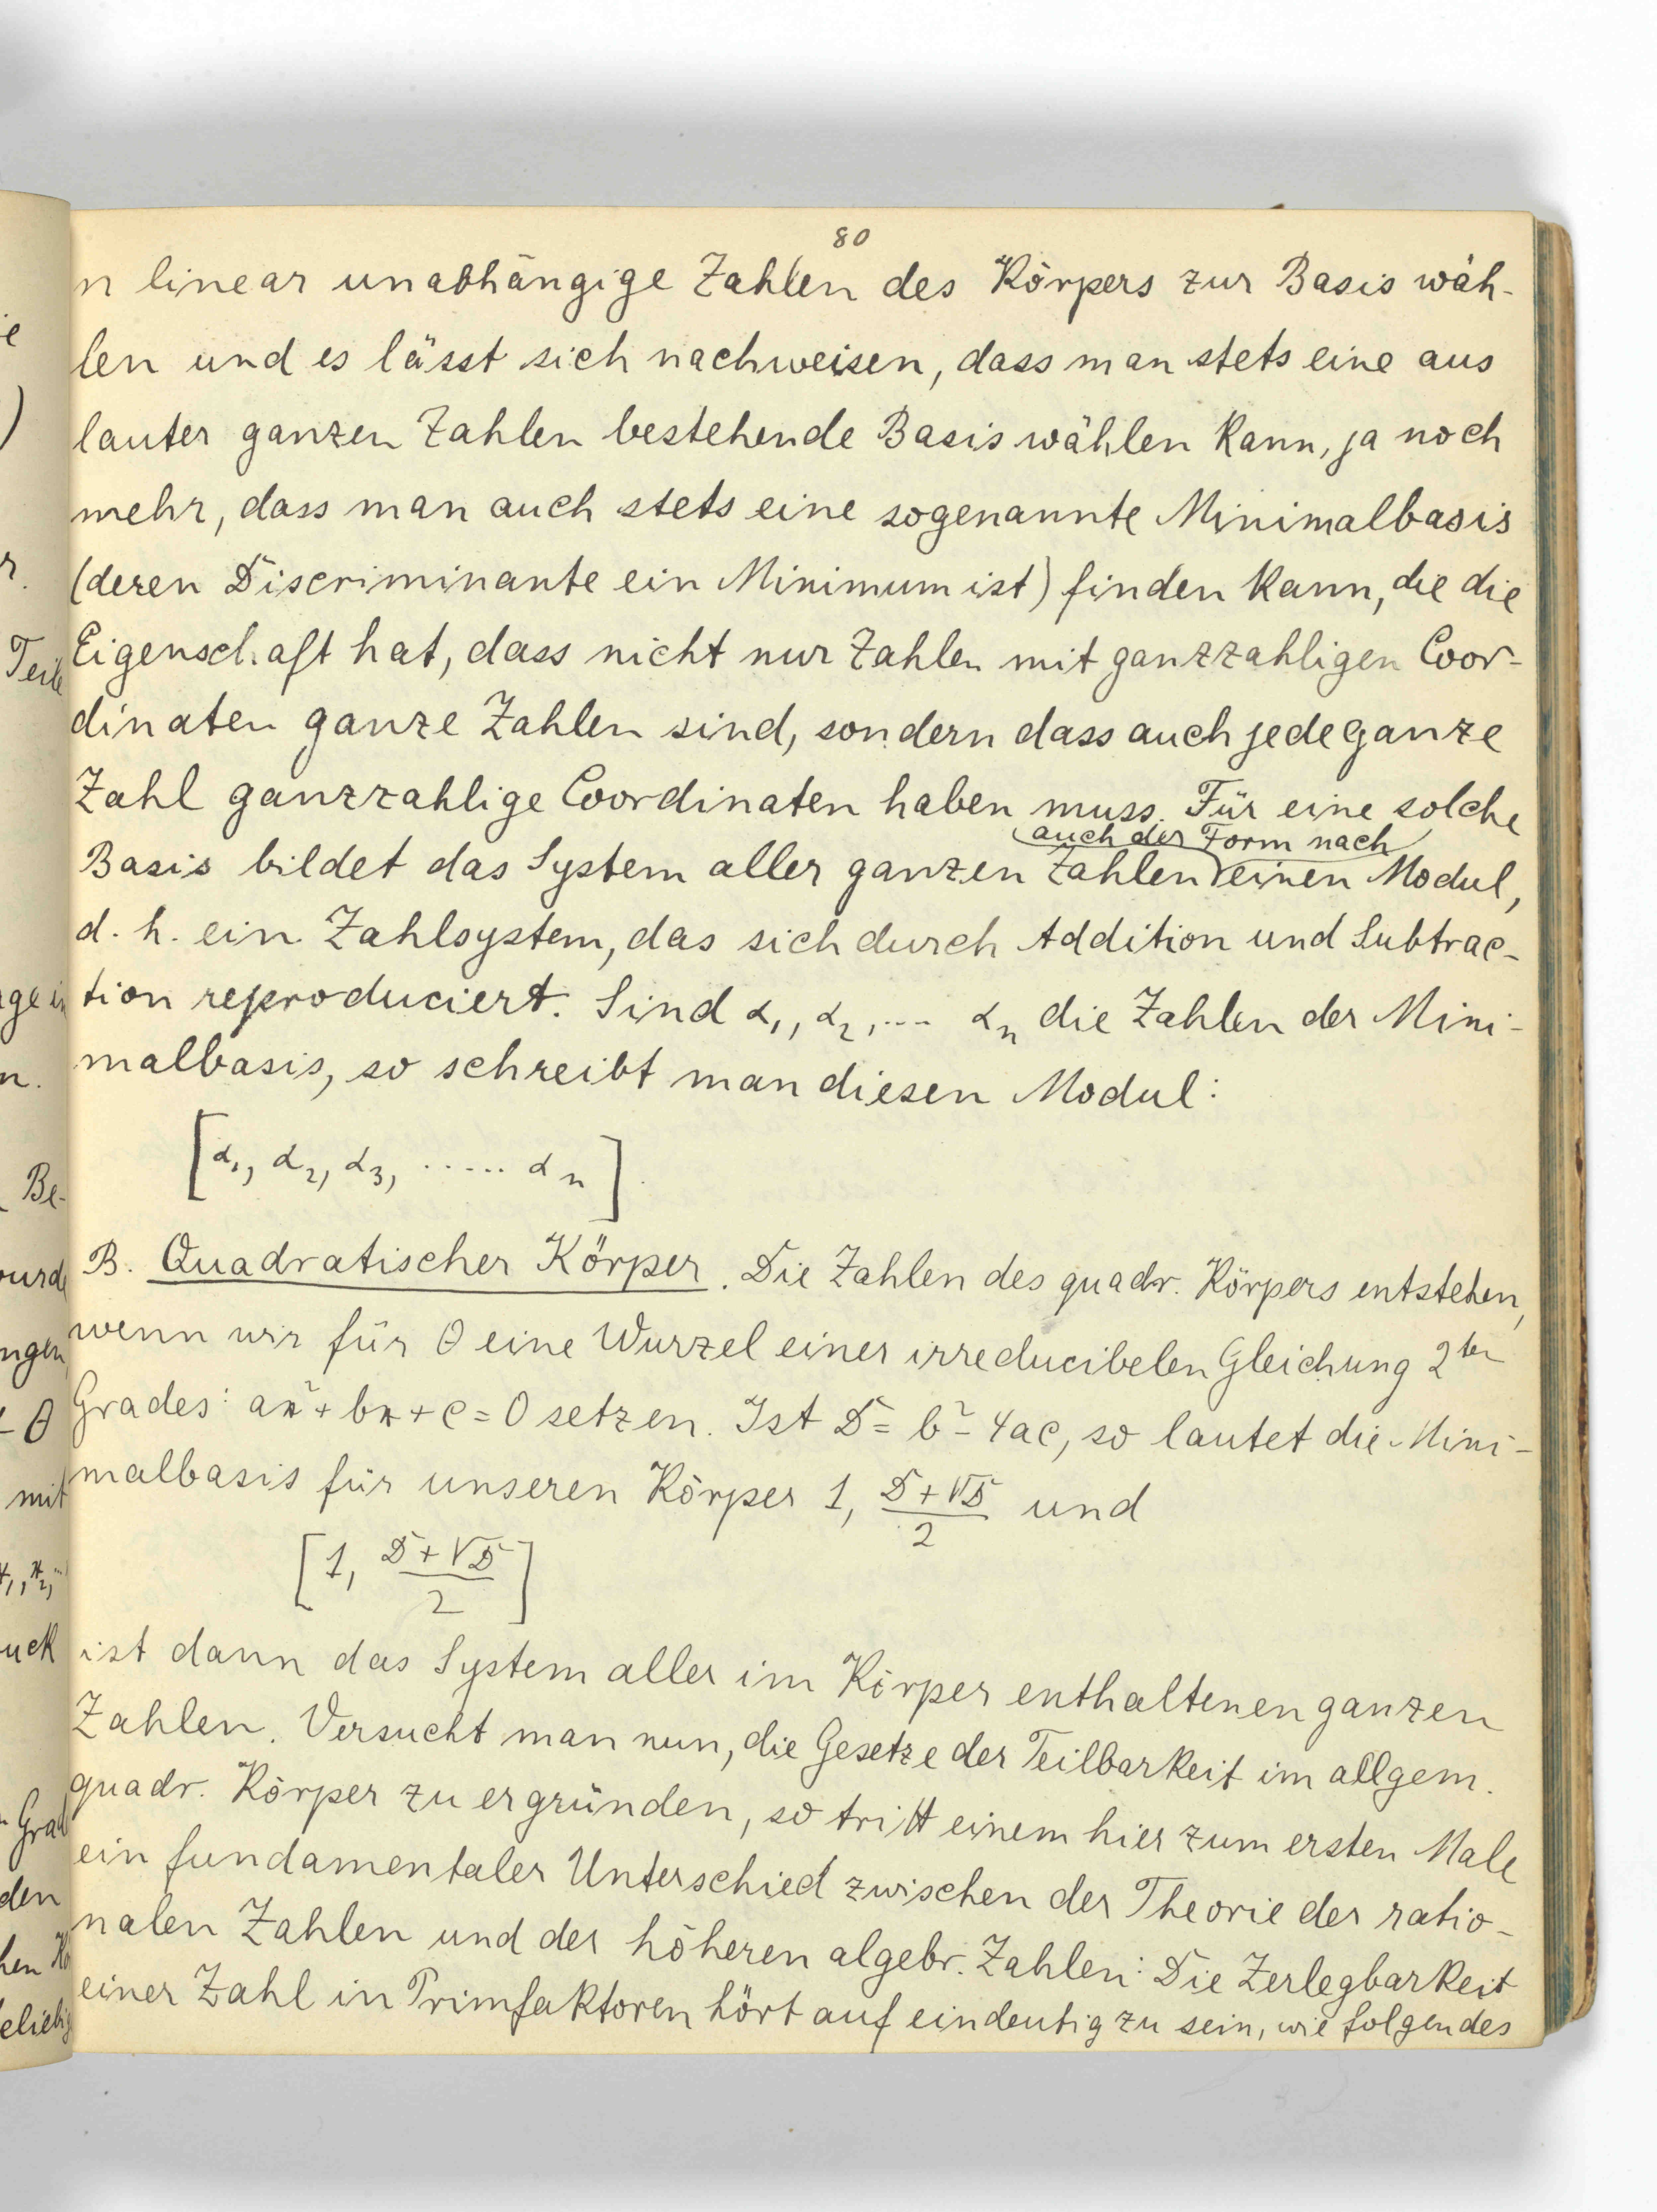 80
n linear unabhängige Zahlen des Körpers zur Basis wäh-
len und es lässt sich nachweisen, dass man stets eine aus
lauter ganzen Zahlen bestehende Basis wählen kann, ja noch
mehr, dass man auch stets eine sogenannte Minimalbasis
(deren Discriminante ein Minimum ist) finden kann, die die
Eigenschaft hat, dass nicht nur Zahlen mit ganzzahligen Coor-
dinaten ganze Zahlen sind, sondern dass auch jede ganze
Zahl ganzzahlige Coordinaten haben muss. Für eine solche
auch der Form nach
Basis bildet das System aller ganzen Zahlen einen Modul,
d. h. ein Zahlsystem, das sich durch Addition und Subtrac-
tion reproduciert. Sind α₁, α₂, ... αₙ die Zahlen der Mini-
malbasis, so schreibt man diesen Modul:
[α₁, α₂, α₃, ..... αₙ].
B. Quadratischer Körper. Die Zahlen des quadr. Körpers entstehen,
wenn wir für θ eine Wurzel einer irreducibelen Gleichung 2ten
Grades: ax² + bx + c = 0 setzen. Ist D = b² - 4ac, so lautet die Mini-
malbasis für unseren Körper 1, (D+√D)/2 und
[1, (D+√D)/2]
ist dann das System aller im Körper enthaltenen ganzen
Zahlen. Versucht man nun, die Gesetze der Teilbarkeit im allgem.
quadr. Körper zu ergründen, so tritt einem hier zum ersten Male
ein fundamentaler Unterschied zwischen der Theorie der ratio-
nalen Zahlen und der höheren algebr. Zahlen: Die Zerlegbarkeit
einer Zahl in Primfaktoren hört auf eindeutig zu sein, wie folgendes